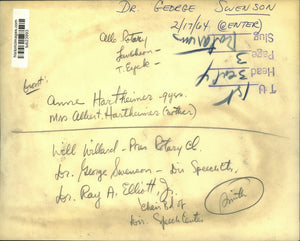 DR. GEORGE SWENSON
2/17/64 (ENTER)
Rotarian
Slug
3
Page
Head
T U
Alls Rotary
Luncheon -
T. Eyck -
front:
Anne Hartheimer - 9yrs.
Mrs Albert Hartheimer (mother)
Will Willard - Pres Rotary Cl.
Dr. George Swenson - Dir Speech
Dr. Ray A. Elliott, Jr.
Chair Bd of
Dir. Speech Center
Smith